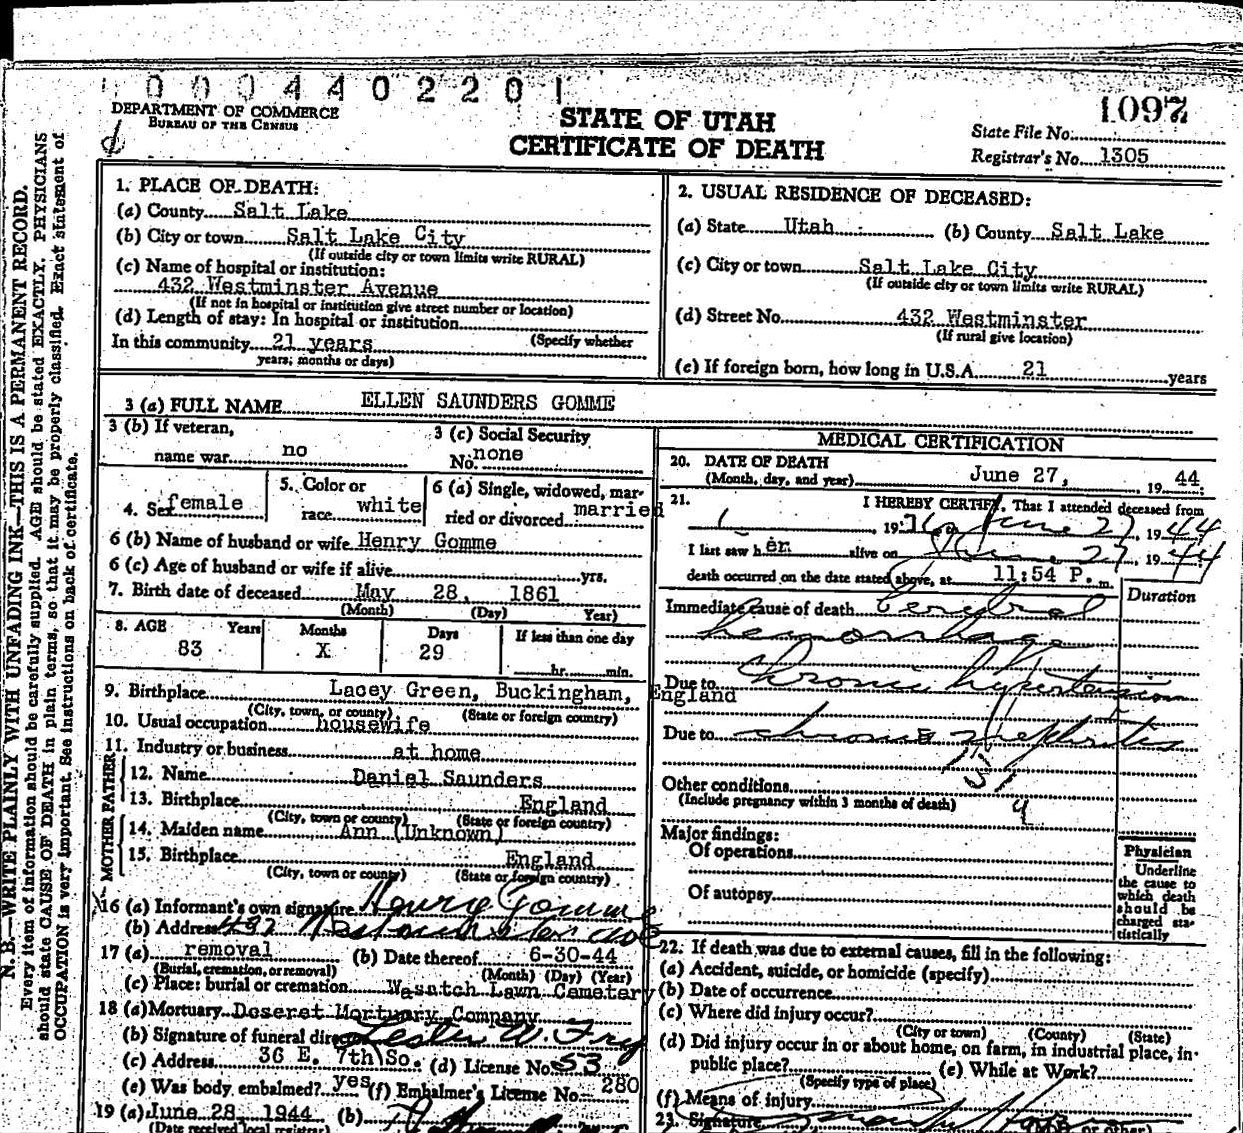 0004402201
DEPARTMENT OF COMMERCE
BUREAU OF THE CENSUS
STATE OF UTAH
CERTIFICATE OF DEATH
1097
State File No.
Registrar's No. 1305
N. B.—WRITE PLAINLY WITH UNFADING INK—THIS IS A PERMANENT RECORD.
Every item of information should be carefully supplied. AGE should be stated EXACTLY. PHYSICIANS
should state CAUSE OF DEATH in plain terms, so that it may be properly classified. Exact statement of
OCCUPATION is very important. See instructions on back of certificate.
1. PLACE OF DEATH:
(a) County Salt Lake
(b) City or town Salt Lake City
(If outside city or town limits write RURAL)
(c) Name of hospital or institution:
432 Westminster Avenue
(If not in hospital or institution give street number or location)
(d) Length of stay: In hospital or institution
In this community 21 years (Specify whether
years, months or days)
2. USUAL RESIDENCE OF DECEASED:
(a) State Utah (b) County Salt Lake
(c) City or town Salt Lake City
(If outside city or town limits write RURAL)
(d) Street No. 432 Westminster
(If rural give location)
(e) If foreign born, how long in U.S.A. 21 years
3 (a) FULL NAME ELLEN SAUNDERS GOMME
3 (b) If veteran,
name war no
3 (c) Social Security
No. none
4. Sex female
5. Color or
race white
6 (a) Single, widowed, mar-
ried or divorced married
6 (b) Name of husband or wife Henry Gomme
6 (c) Age of husband or wife if alive yrs.
7. Birth date of deceased May 28, 1861
(Month) (Day) Year)
8. AGE Years Months Days If less than one day
83 X 29 hr. min.
9. Birthplace Lacey Green, Buckingham, England
(City, town, or county) (State or foreign country)
10. Usual occupation housewife
11. Industry or business at home
FATHER
12. Name Daniel Saunders
13. Birthplace England
(City, town or county) (State or foreign country)
MOTHER
14. Maiden name Ann (Unknown)
15. Birthplace England
(City, town or county) (State or foreign country)
16 (a) Informant's own signature Henry Gomme
(b) Address 432 Westminster ave
17 (a) removal (b) Date thereof 6-30-44
(Burial, cremation, or removal) (Month) (Day) (Year)
(c) Place: burial or cremation Wasatch Lawn Cemetery
18 (a) Mortuary Deseret Mortuary Company
(b) Signature of funeral director Lester W. Fry
(c) Address 36 E. 7th So. (d) License No. 53
(e) Was body embalmed? yes (f) Embalmer's License No. 280
19 (a) June 28, 1944 (b)
(Date received local registrar)
MEDICAL CERTIFICATION
20. DATE OF DEATH
(Month, day, and year) June 27, 19 44
21. I HEREBY CERTIFY, That I attended deceased from
19 to June 27, 1944
I last saw her alive on June 27, 1944
death occurred on the date stated above, at 11:54 P. m.
Duration
Immediate cause of death Cerebral
hemorrhage
Due to Chronic hypertension
Due to chronic nephritis
Other conditions
(Include pregnancy within 3 months of death)
Major findings:
Of operations
Of autopsy
Physician
Underline
the cause to
which death
should be
charged sta-
tistically
22. If death was due to external causes, fill in the following:
(a) Accident, suicide, or homicide (specify)
(b) Date of occurrence
(c) Where did injury occur?
(City or town) (County) (State)
(d) Did injury occur in or about home, on farm, in industrial place, in-
public place? (e) While at Work?
(Specify type of place)
(f) Means of injury
23. Signature or other)